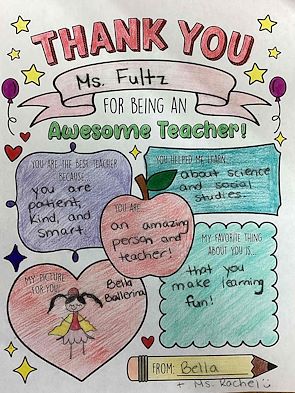 THANK YOU
Ms. Fultz
FOR BEING AN
Awesome Teacher!
YOU ARE THE BEST TEACHER
BECAUSE...
you are
patient,
kind, and
smart.
YOU HELPED ME LEARN...
about science
and social
studies.
YOU ARE...
an amazing
person and
teacher!
MY FAVORITE THING
ABOUT YOU IS...
that you
make learning
fun!
MY PICTURE
FOR YOU!
Bella
Ballerina
FROM: Bella
+ Ms. Rachel